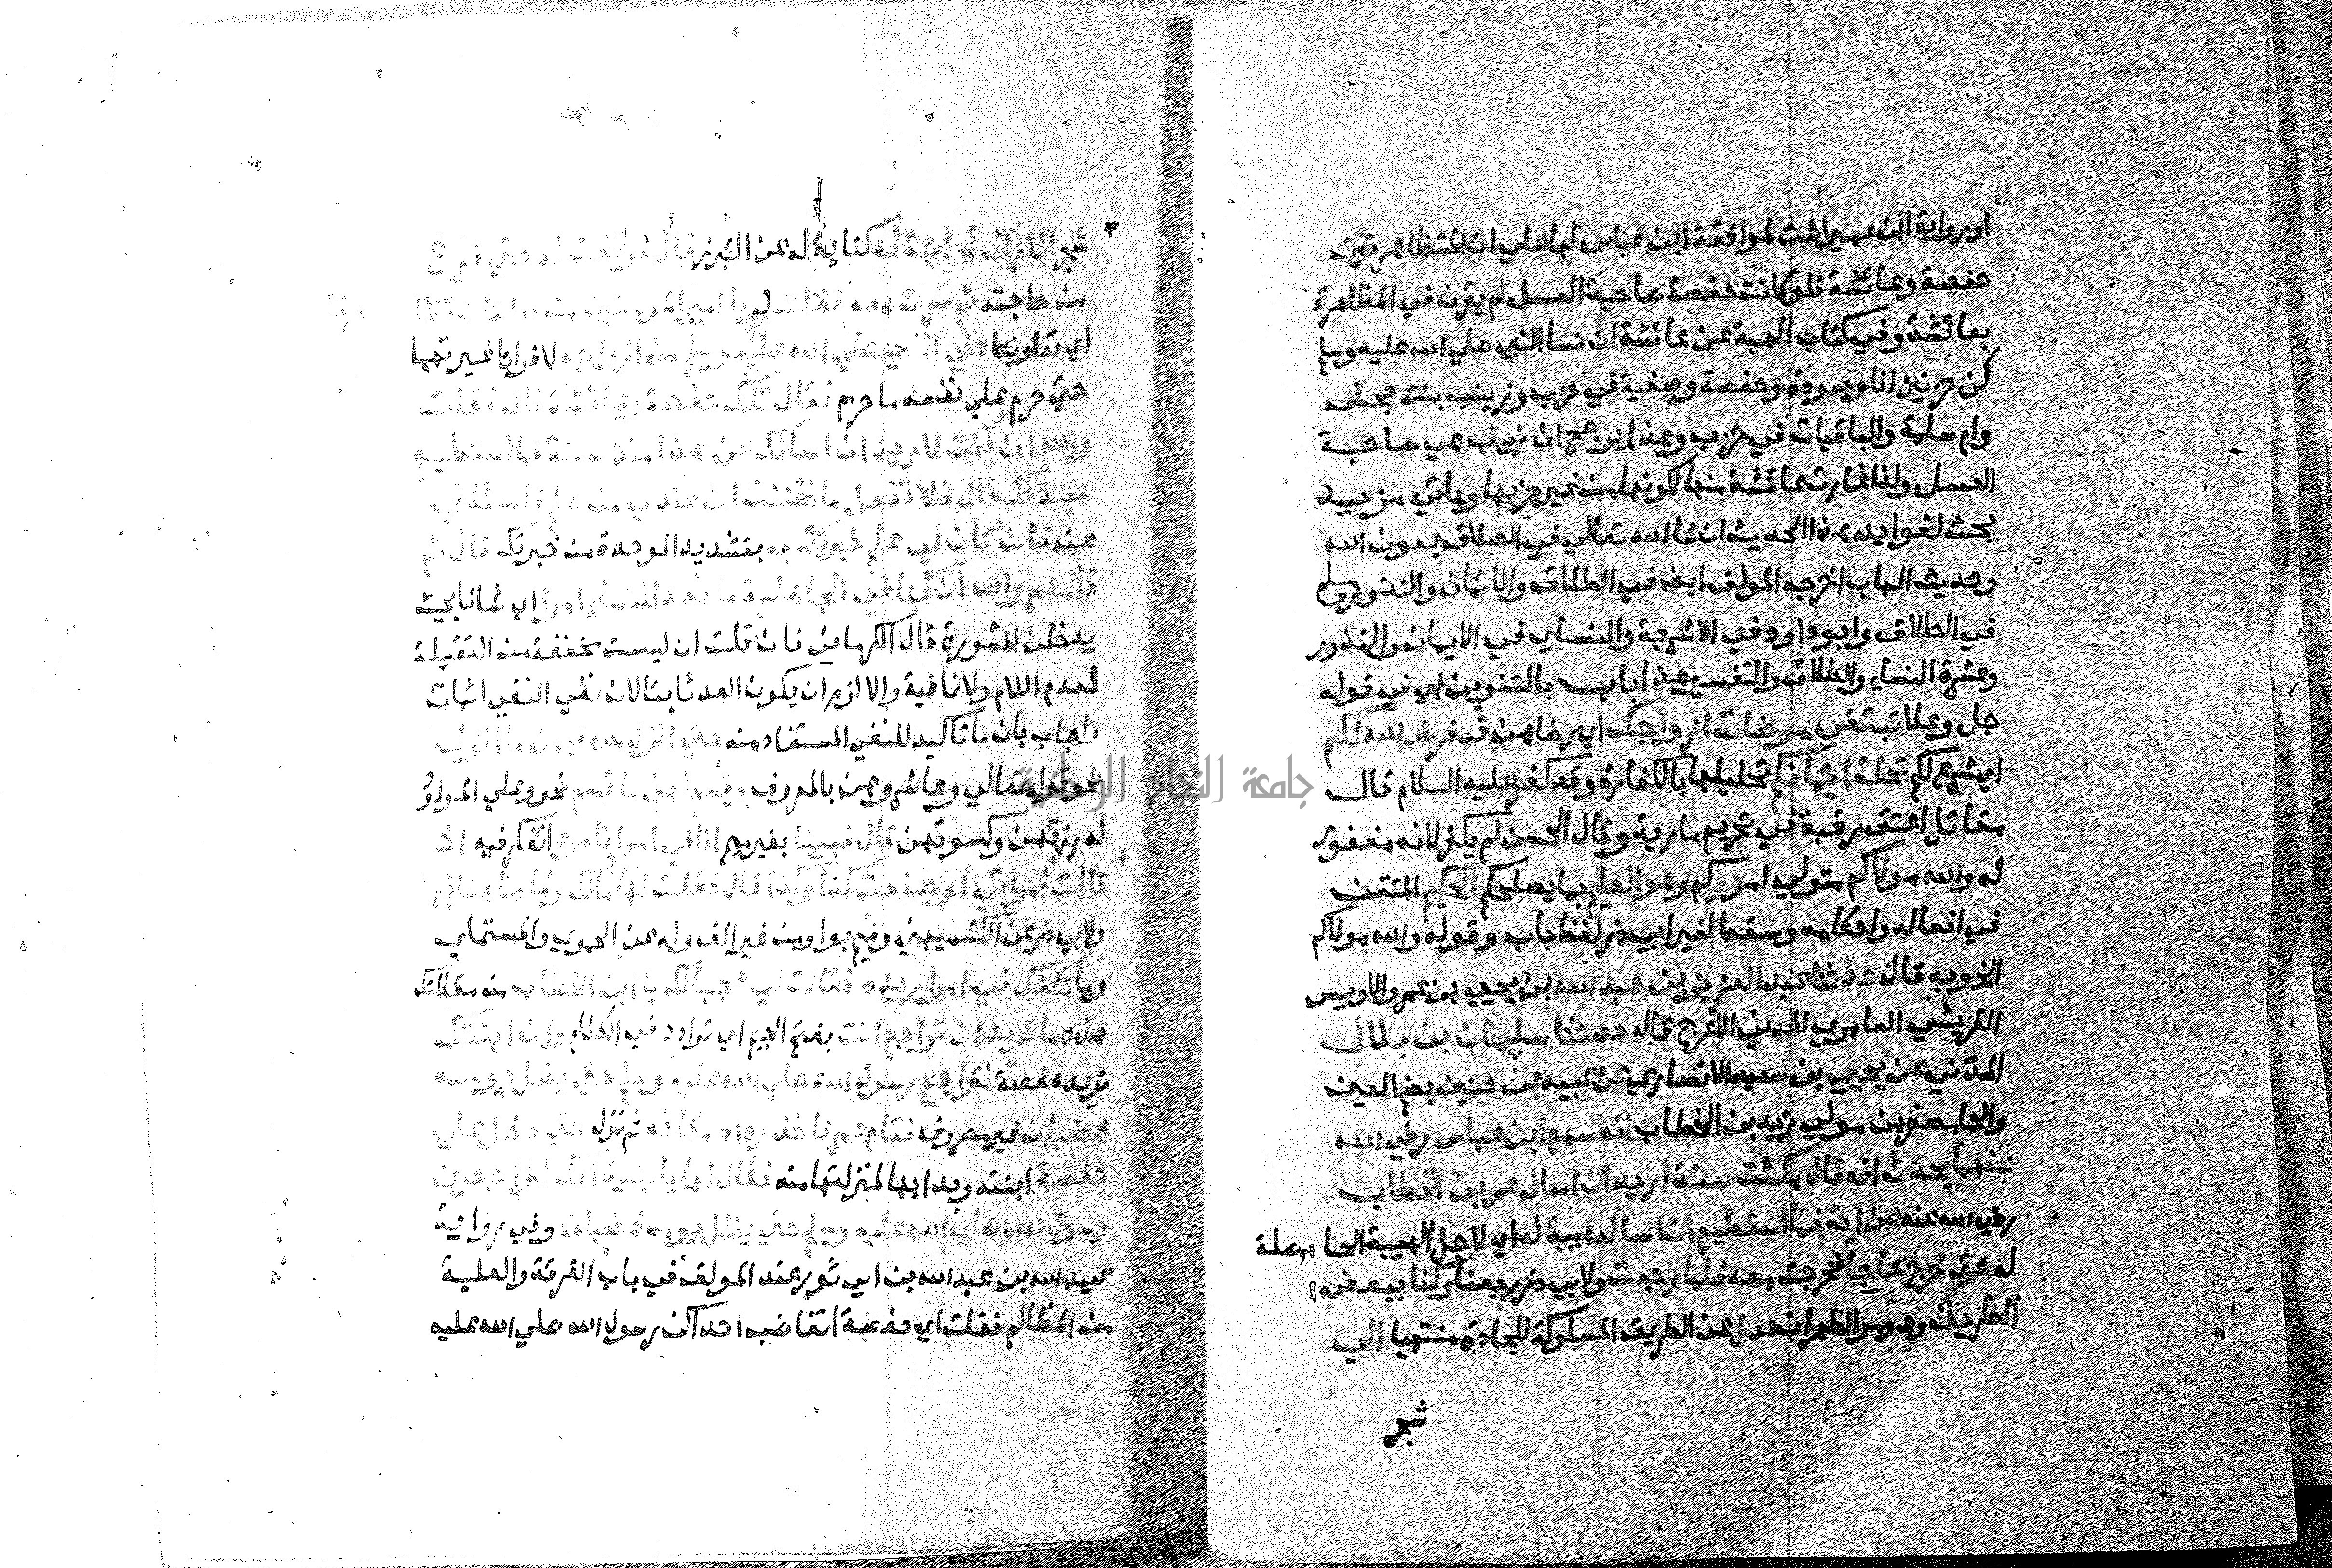 او رواية ابن عمير اثبت لموافقة ابن عباس لها علي ان المتظاهرتين
حفصة وعائشة فلو كانت حفصة صاحبة العسل لم يقرن في المظاهرة
بعائشة وفي كتاب الهبة عن عائشة ان نسا النبي صلي الله عليه وسلم
كن حزبين انا وسودة وحفصة وصفية في حزب وزينب بنت جحش
وام سلمة والباقيات في حزب وهذا يرجح ان زينب هي صاحبة
العسل ولذا غارت عائشة منها لكونها من غير حزبها وياتي مزيد
بحث لفوايد هذا الحديث ان شا الله تعالي في الطلاق بعون الله
وحديث الباب اخرجه المولف ايضا في الطلاق والايمان والنذور ومسلم
في الطلاق وابو داود في الاشربة والنساي في الايمان والنذور
وعشرة النساء والطلاق والتفسير هذا باب بالتنوين اي في قوله
جل وعلا تبتغي مرضات ازواجك اي رضاهن قد فرض الله لكم
اي شرع لكم تحلة ايمانكم تحليلها بالكفارة وقد كفر عليه السلام قال
مقاتل اعتق رقبة في تحريم مارية وقال الحسن لم يكفر لانه مغفور
له والله مولاكم متولي اموركم وهو العليم بما يصلحكم الحكيم المتقن
في افعاله واحكامه وسقط لغير ابي ذر لفظ باب وقوله والله مولاكم
الخ وبه قال حدثنا عبد العزيز بن عبد الله بن يحيي بن عمرو الاويسي
القرشي العامري المدني الاعرج قال حدثنا سليمان بن بلال
المدني عن يحيي بن سعيد الانصاري عن عبيد بن حنين بضم العين
والحا مصغرين مولي زيد بن الخطاب انه سمع ابن عباس رضي الله
عنهما يحدث انه قال مكثت سنة اريد ان اسال عمر بن الخطاب
رضي الله عنه عن اية فما استطيع ان اساله هيبة له اي لاجل الهيبة الحاصلة
له حتي خرج حاجا فخرجت معه فلما رجعت ولابي ذر رجعنا وكنا ببعض
الطريق وهو مر الظهران عدل عن الطريق المسلوكة للجادة منتهيا الي
شجر
شجر الاراك لحاجة له كناية له عن التبرز قال فوقفت له حتي فرغ
من حاجته ثم سرت معه فقلت له يا امير المومنين من اللتان تظاهرتا
اي تعاونتا علي النبي صلي الله عليه وسلم من ازواجه لافراط غيرتهما
حتي حرم علي نفسه ما حرم فقال تلك حفصة وعائشة قال فقلت
والله ان كنت لاريد ان اسالك عن هذا منذ سنة فما استطيع
هيبة لك قال فلا تفعل ما ظننت ان عندي من علم فاسالني
عنه فان كان لي علم خبرتك به بتشديد الموحدة من خبرتك قال ثم
قال عمر والله ان كنا في الجاهلية ما نعد للنساء امرا اي شانا بحيث
يدخلن المشورة قال الكرماني فان قلت ان ليست مخففة من الثقيلة
لعدم اللام ولا نافية والا لزم ان يكون العد ثابتا لان نفي النفي اثبات
واجاب بان ما تاكيد للنفي المستفاد منه حتي انزل الله فيهن ما انزل
نحو قوله تعالي وعاشروهن بالمعروف وقسم لهن ما قسم نحو وعلي المولود
له رزقهن وكسوتهن قال فبينا بغير ميم انا في امر اتامره اتفكر فيه اذ
قالت امراتي لو صنعت كذا وكذا قال فقلت لها مالك ولما هاهنا فيم
ولابي ذر عن الكشميهني وفيم بواو من غير الف وله عن الحموي والمستملي
وما تكلفك في امر اريده فقالت لي عجبا لك يا ابن الخطاب من مقالتك
هذه ما تريد ان تراجع انت بفتح الجيم اي ترادد في الكلام وان ابنتك
تريد حفصة لتراجع رسول الله صلي الله عليه وسلم حتي يظل يومه
غضبان غير مصروف فقام عمر فاخذ رداه مكانه ثم نزل حتي دخل علي
حفصة ابنته وبدا بها لمنزلتها منه فقال لها يا بنية انك لتراجعين
رسول الله صلي الله عليه وسلم حتي يظل يومه غضبان وفي رواية
عبيد الله بن عبد الله بن ابي ثور عند المولف في باب الغرفة والعلية
من المظالم فقلت اي حفصة اتغاضب احداكن رسول الله صلي الله عليه
جامعة النجاح